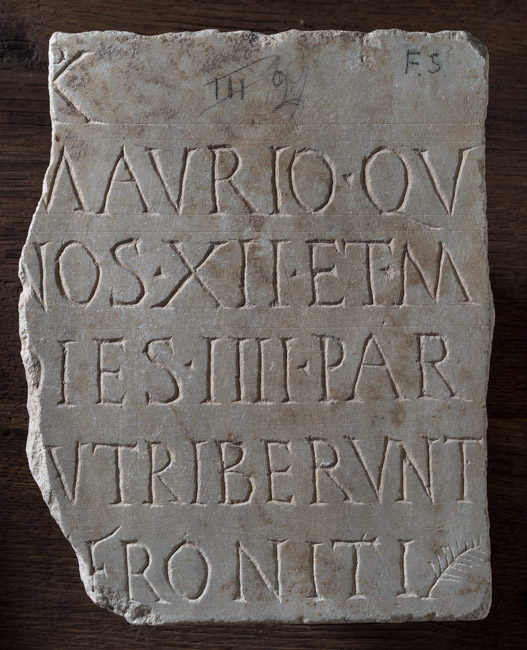 K III 2 F.S
MAVRIO·QV
NOS·XII·ET·M
IES·IIII·PAR
VTRIBERVNT
FRONITI